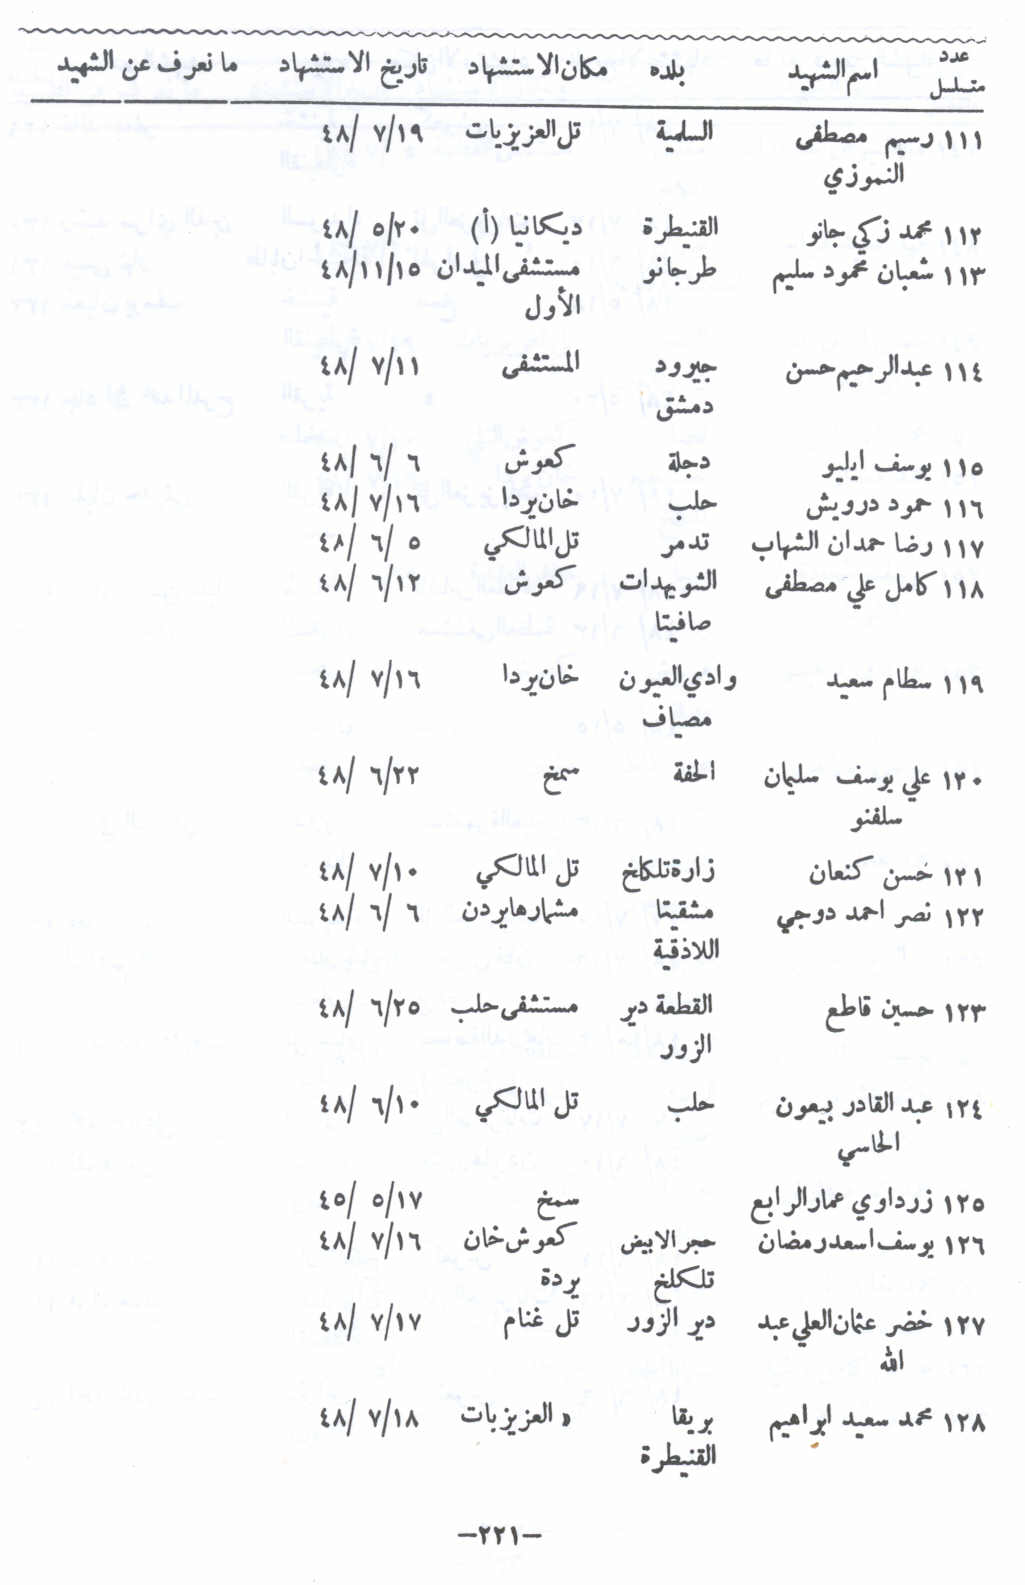 عدد متسلسل اسم الشهيد بلده مكان الاستشهاد تاريخ الاستشهاد ما نعرف عن الشهيد
١١١ رسيم مصطفى السلمية تل العزيزيات ٤٨/ ٧/١٩
النموزي
١١٢ محمد زكي جانو القنيطرة ديكانيا (أ) ٤٨/ ٥/٢٠
١١٣ شعبان محمود سليم طرجانو مستشفى الميدان ٤٨/١١/١٥
الأول
١١٤ عبدالرحيم حسن جيرود المستشفى ٤٨/ ٧/١١
دمشق
١١٥ يوسف ايليو دحلة كعوش ٤٨/ ٦/ ٦
١١٦ حمود درويش حلب خان يردا ٤٨/ ٧/١٦
١١٧ رضا حمدان الشهاب تدمر تل المالكي ٤٨/ ٦/ ٥
١١٨ كامل علي مصطفى الشويهدات كعوش ٤٨/ ٦/١٢
صافيتا
١١٩ سطام سعيد وادي العيون خان يردا ٤٨/ ٧/١٦
مصياف
١٢٠ علي يوسف سليمان الحفة سمخ ٤٨/ ٦/٢٢
سلفنو
١٢١ حسن كنعان زارة تلكلخ تل المالكي ٤٨/ ٧/١٠
١٢٢ نصر احمد دوجي مشقيتا مشمارهايردن ٤٨/ ٦/ ٦
اللاذقية
١٢٣ حسين قاطع القطعة دير مستشفى حلب ٤٨/ ٦/٢٥
الزور
١٢٤ عبد القادر بيعون حلب تل المالكي ٤٨/ ٦/١٠
الحاسي
١٢٥ زرداوي عمار الرابع سمخ ٤٥/ ٥/١٧
١٢٦ يوسف اسعد رمضان حجر الابيض كعوش خان ٤٨/ ٧/١٦
تلكلخ يردة
١٢٧ خضر عثمان العلي عبد دير الزور تل غنام ٤٨/ ٧/١٧
الله
١٢٨ محمد سعيد ابراهيم بريقا » العزيزيات ٤٨/ ٧/١٨
القنيطرة
—٢٢١—